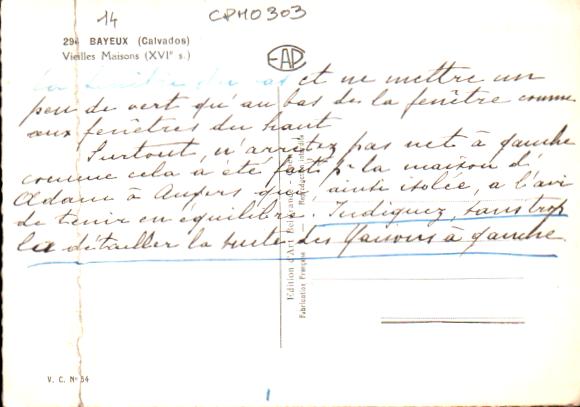 14
CPM0303
294 BAYEUX (Calvados)
Vieilles Maisons (XVIe s.)
EAP
la fenêtre du bas et ne mettre un
peu de vert qu'au bas de la fenêtre comme
aux fenêtres du haut
Surtout, n'arrêtez pas net à gauche
comme cela a été fait pr la maison d'
Adam à Angers qui, ainsi isolée, a l'air
de tenir en équilibre. Indiquez, sans trop
la détailler la suite des Maisons à gauche
Edition d'Art
Fabrication Française — Reproduction interdite
V. C. No 54